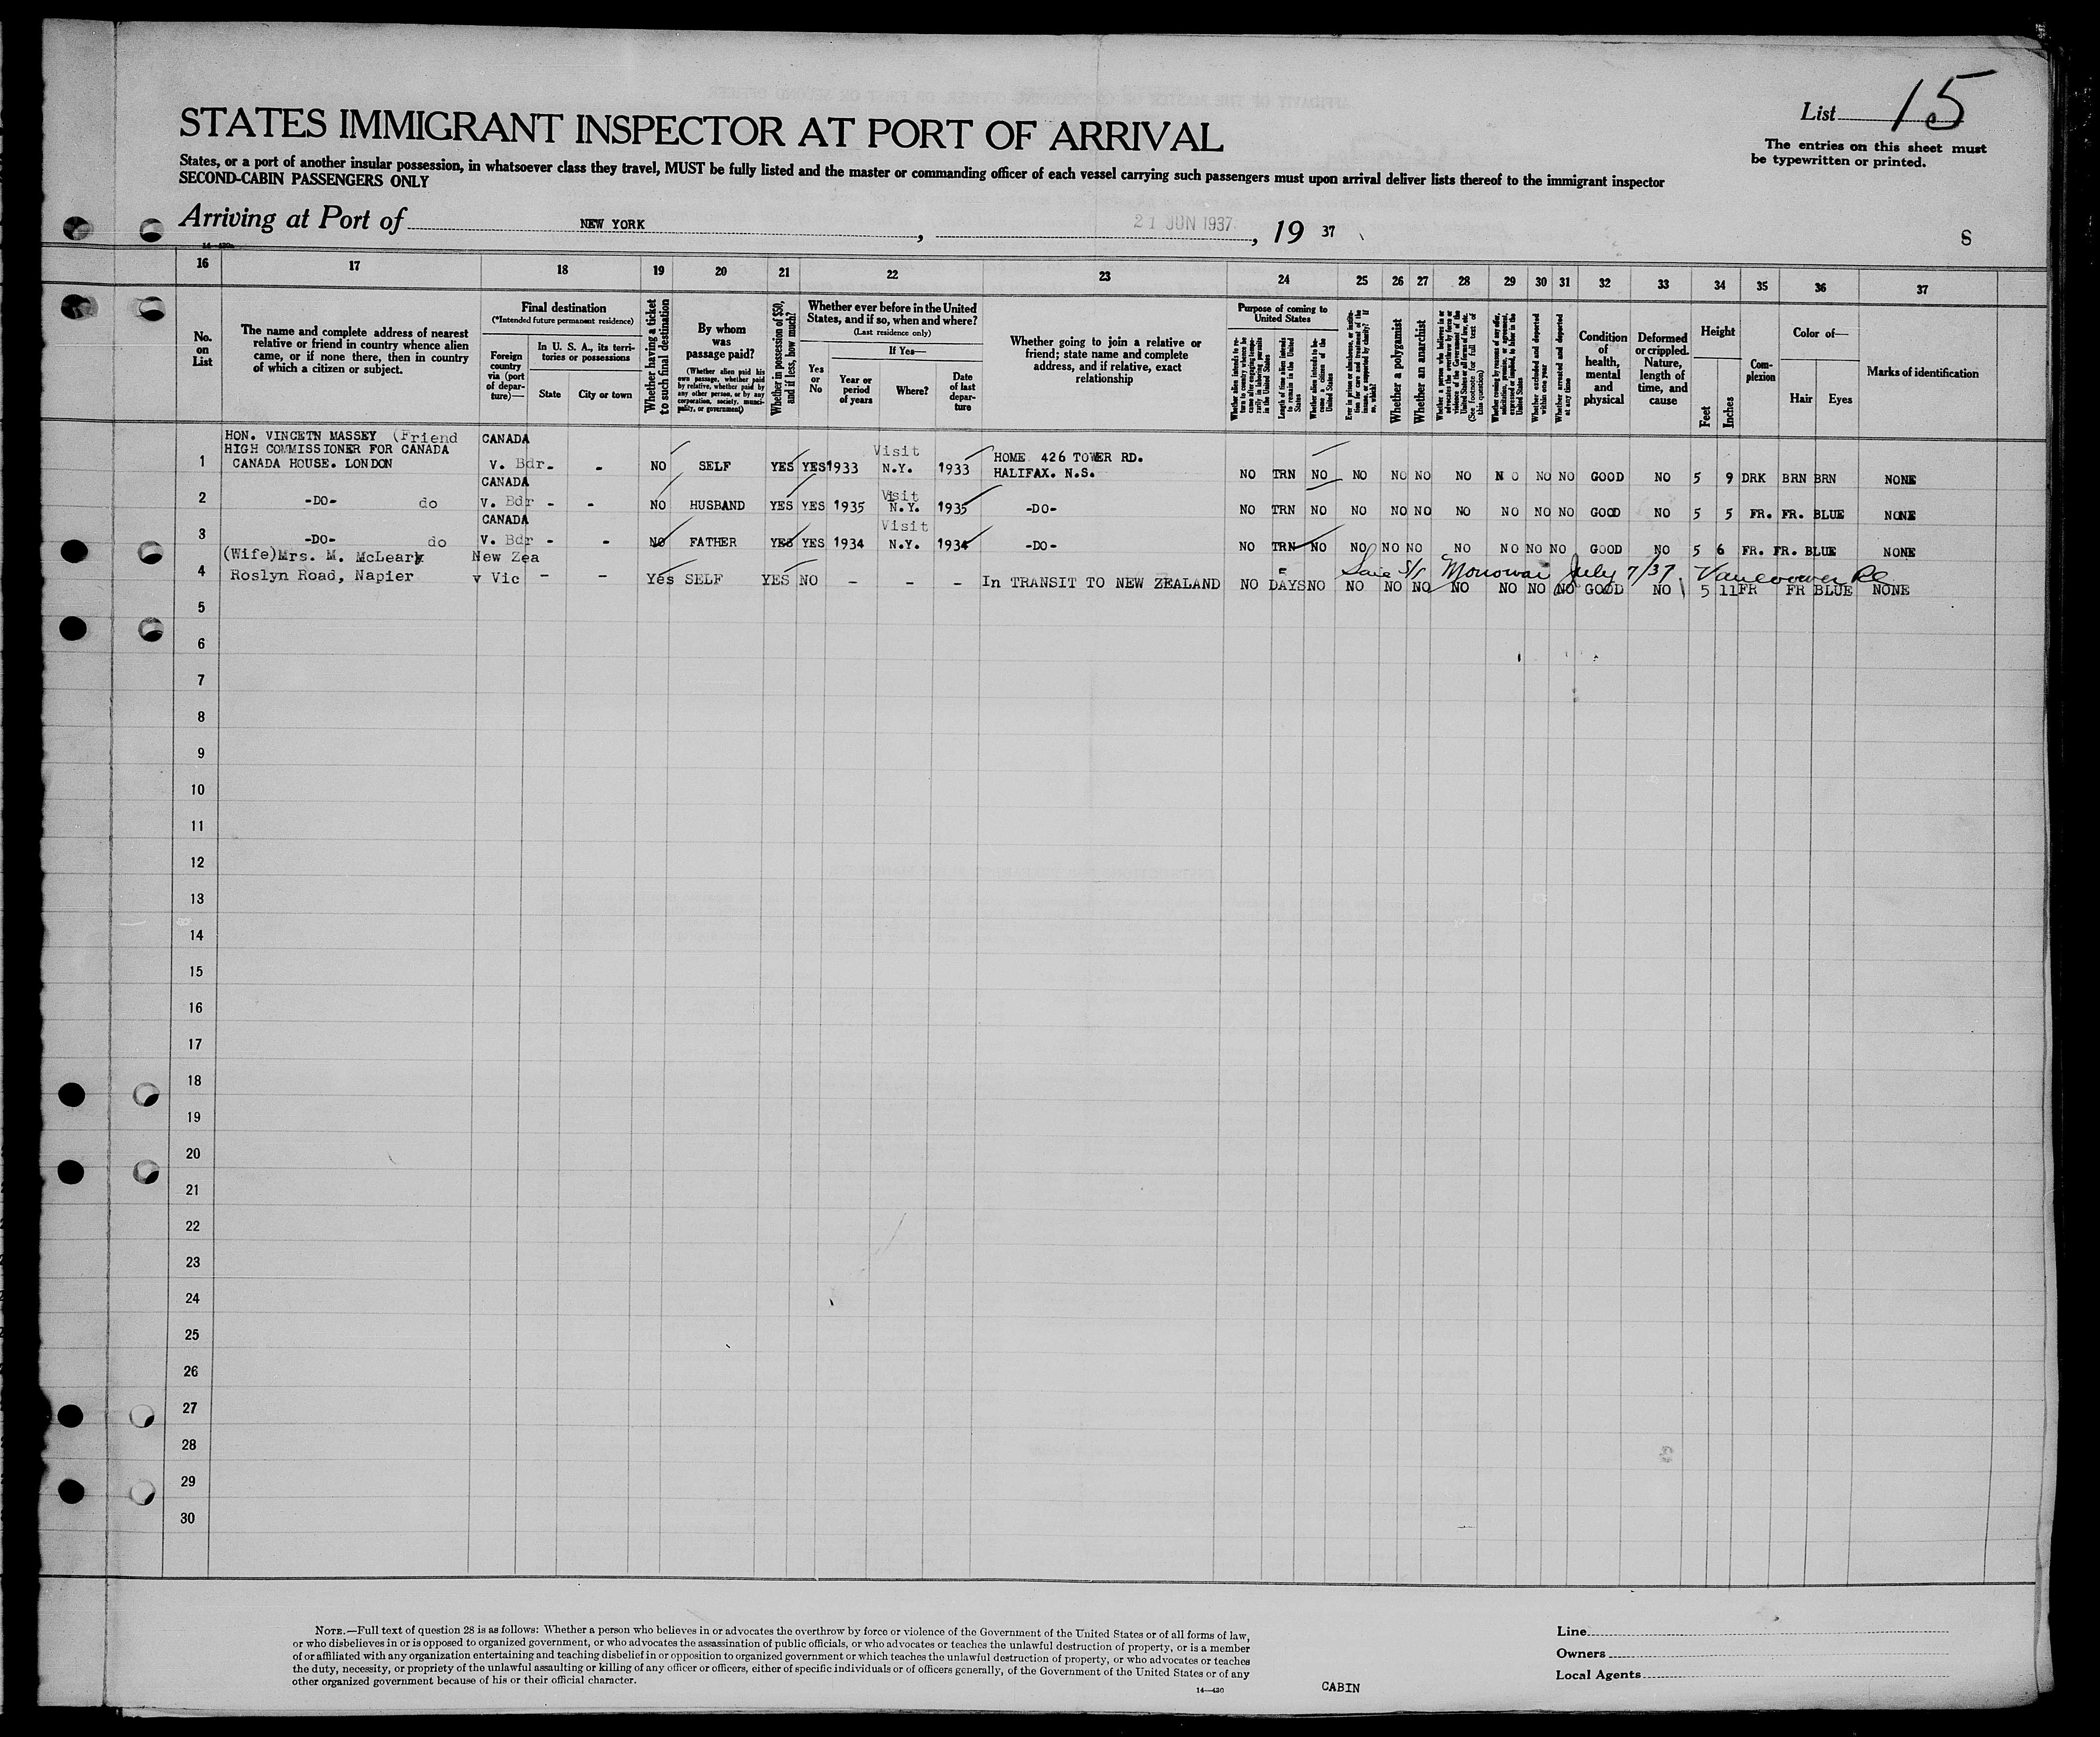 List 15
The entries on this sheet must
be typewritten or printed.
STATES IMMIGRANT INSPECTOR AT PORT OF ARRIVAL
States, or a port of another insular possession, in whatsoever class they travel, MUST be fully listed and the master or commanding officer of each vessel carrying such passengers must upon arrival deliver lists thereof to the immigrant inspector
SECOND-CABIN PASSENGERS ONLY
Arriving at Port of NEW YORK, 21 JUN 1937, 19 37
S
16 17 18 19 20 21 22 23 24 25 26 27 28 29 30 31 32 33 34 35 36 37
No. on List
The name and complete address of nearest relative or friend in country whence alien came, or if none there, then in country of which a citizen or subject.
Final destination
(*Intended future permanent residence)
Foreign country via (port of departure)—
In U. S. A., its territories or possessions
State
City or town
Whether having a ticket to such final destination
By whom was passage paid?
(Whether alien paid his own passage, whether paid by relative, whether paid by any other person, or by any corporation, society, municipality, or government)
Whether in possession of $50, and if less, how much?
Whether ever before in the United States, and if so, when and where?
(Last residence only)
Yes or No
If Yes—
Year or period of years
Where?
Date of last departure
Whether going to join a relative or friend; state name and complete address, and if relative, exact relationship
Purpose of coming to United States
Whether alien intends to return to country whence he came after engaging temporarily in laboring pursuits in the United States
Length of time alien intends to remain in the United States
Whether alien intends to become a citizen of the United States
Ever in prison or almshouse, or institution for care and treatment of the insane, or supported by charity? If so, which?
Whether a polygamist
Whether an anarchist
Whether a person who believes in or advocates the overthrow by force or violence of the Government of the United States or all forms of law, etc. (See footnote for full text of this question)
Whether coming by reasons of any offer, solicitation, promise, or agreement, expressed or implied, to labor in the United States
Whether excluded and deported within one year
Whether arrested and deported at any time
Condition of health, mental and physical
Deformed or crippled. Nature, length of time, and cause
Height
Feet
Inches
Complexion
Color of—
Hair
Eyes
Marks of identification
HON. VINCETN MASSEY (Friend
HIGH COMMISSIONER FOR CANADA
CANADA HOUSE. LONDON
1 CANADA V. Bdr. - NO SELF YES YES 1933 Visit N.Y. 1933 HOME 426 TOWER RD. HALIFAX. N.S. NO TRN NO NO NO NO NO NO NO NO GOOD NO 5 9 DRK BRN BRN NONE
2 -DO- do CANADA V. Bdr - - NO HUSBAND YES YES 1935 Visit N.Y. 1935 -DO- NO TRN NO NO NO NO NO NO NO NO GOOD NO 5 5 FR. FR. BLUE NONE
3 -DO- do CANADA V. Bdr - - NO FATHER YES YES 1934 Visit N.Y. 1934 -DO- NO TRN NO NO NO NO NO NO NO NO GOOD NO 5 6 FR. FR. BLUE NONE
(Wife)Mrs. M. McLeary New Zea
S/S Monowai July 7/37. Vancouver BC
4 Roslyn Road, Napier v Vic - - Yes SELF YES NO - - - In TRANSIT TO NEW ZEALAND NO DAYS NO NO NO NO NO NO NO NO GOOD NO 5 11 FR FR BLUE NONE
5
6
7
8
9
10
11
12
13
14
15
16
17
18
19
20
21
22
23
24
25
26
27
28
29
30
NOTE.—Full text of question 28 is as follows: Whether a person who believes in or advocates the overthrow by force or violence of the Government of the United States or of all forms of law,
or who disbelieves in or is opposed to organized government, or who advocates the assassination of public officials, or who advocates or teaches the unlawful destruction of property, or is a member
of or affiliated with any organization entertaining and teaching disbelief in or opposition to organized government or which teaches the unlawful destruction of property, or who advocates or teaches
the duty, necessity, or propriety of the unlawful assaulting or killing of any officer or officers, either of specific individuals or of officers generally, of the Government of the United States or of any
other organized government because of his or their official character.
14—430
CABIN
Line
Owners
Local Agents